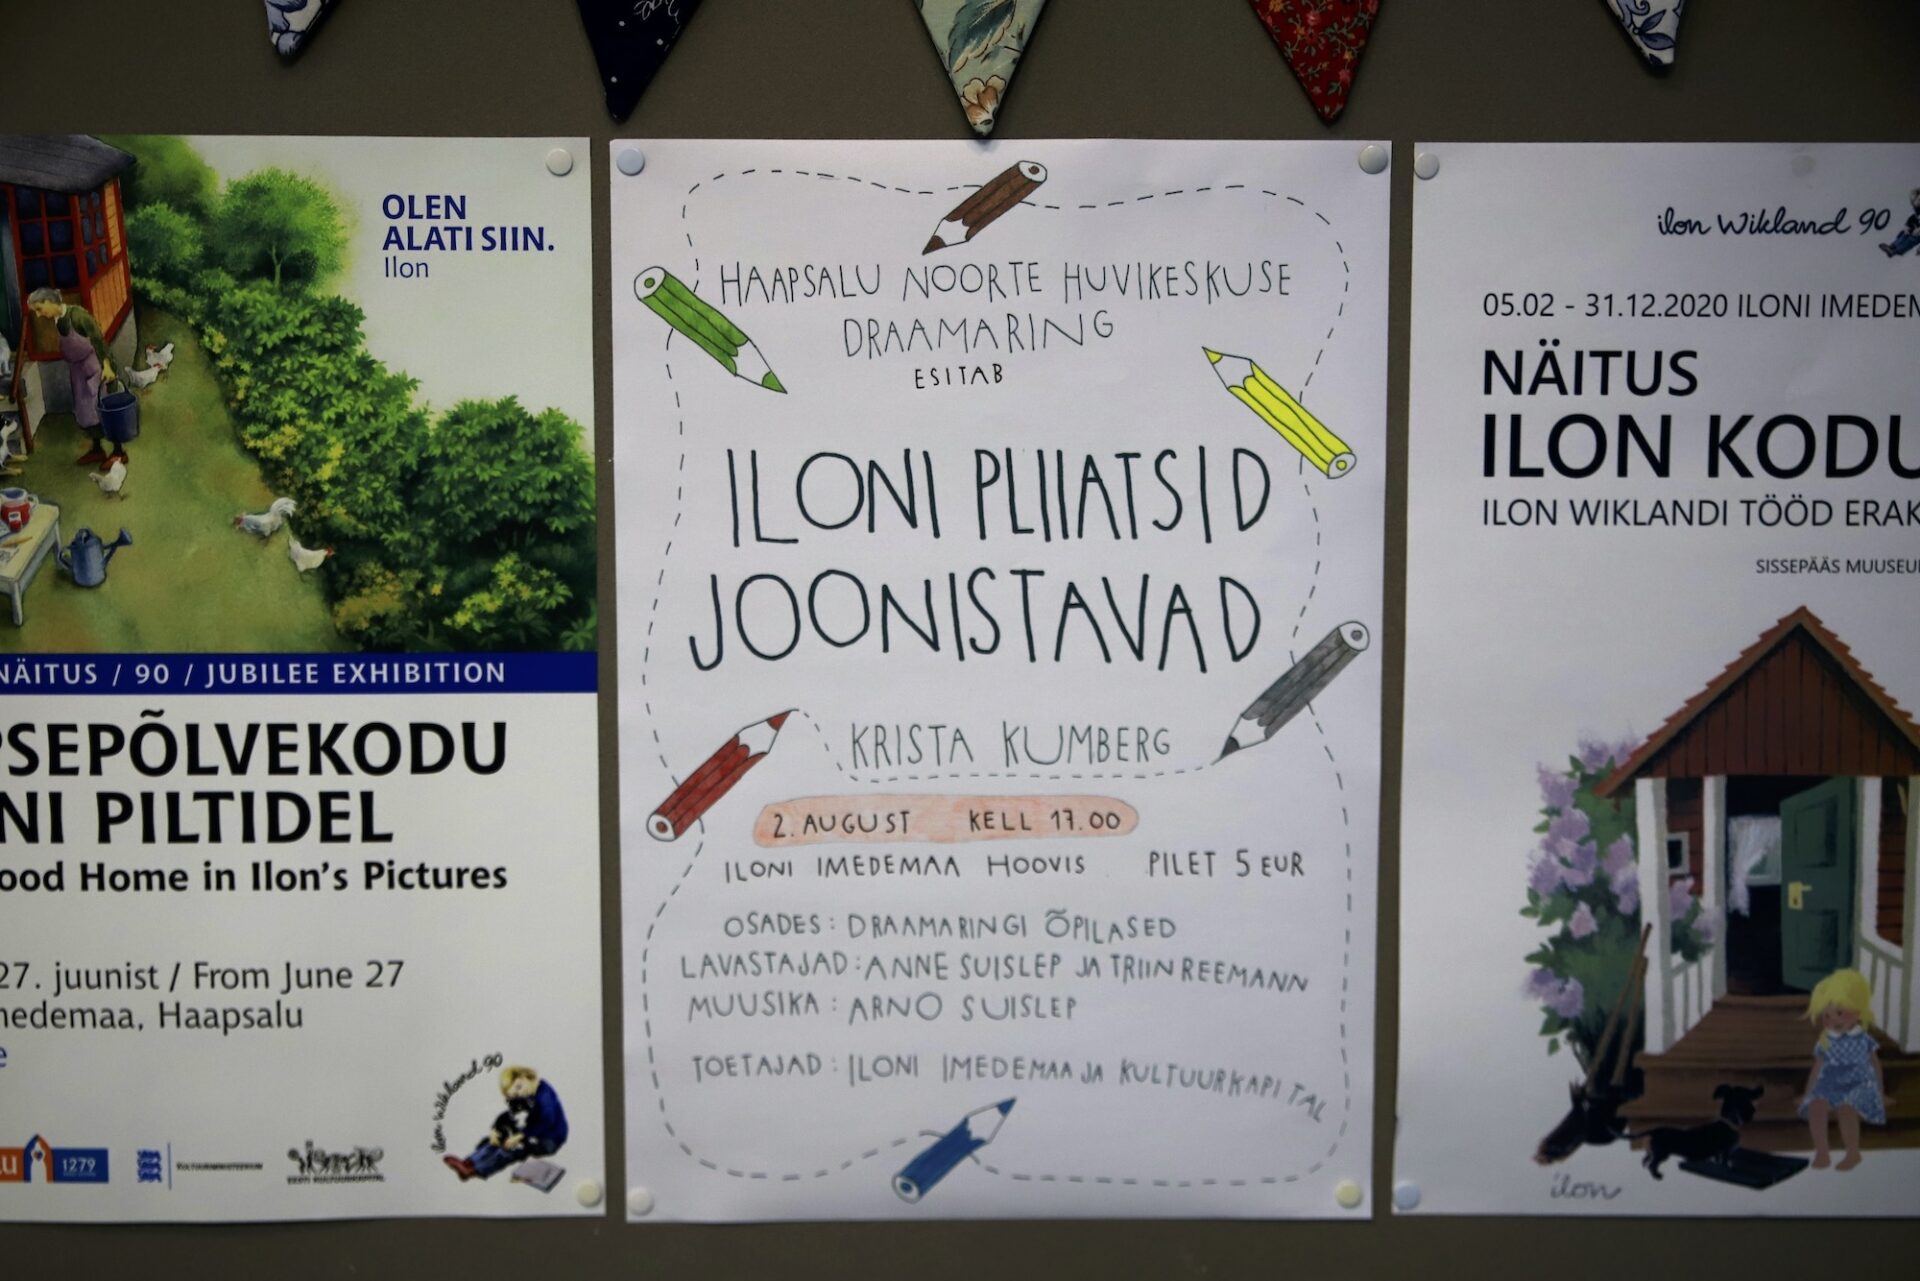 OLEN
ALATI SIIN.
Ilon
NÄITUS / 90 / JUBILEE EXHIBITION
PSEPÕLVEKODU
NI PILTIDEL
ood Home in Ilon's Pictures
27. juunist / From June 27
medemaa, Haapsalu
e
1279
KULTUURIMINISTEERIUM
EESTI KULTUURKAPITAL
ilon Wikland 90
HAAPSALU NOORTE HUVIKESKUSE
DRAAMARING
ESITAB
ILONI PLIIATSID
JOONISTAVAD
KRISTA KUMBERG
2. AUGUST KELL 17.00
ILONI IMEDEMAA HOOVIS PILET 5 EUR
OSADES: DRAAMARINGI ÕPILASED
LAVASTAJAD: ANNE SUISLEP JA TRIIN REEMANN
MUUSIKA: ARNO SUISLEP
TOETAJAD: ILONI IMEDEMAA JA KULTUURKAPITAL
ilon Wikland 90
05.02 - 31.12.2020 ILONI IMEDEM
NÄITUS
ILON KODU
ILON WIKLANDI TÖÖD ERAK
SISSEPÄÄS MUUSEU
ilon